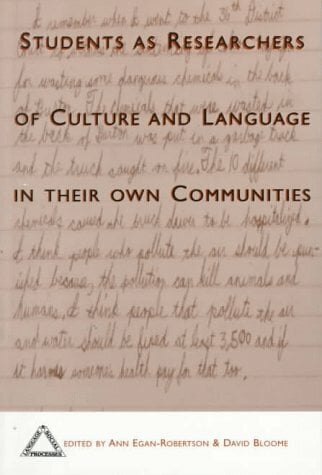 I remember when I went to the 36th District
STUDENTS AS RESEARCHERS
for wasting some dangerous chemicals in the back
of The chemicals that were wasted in
OF CULTURE AND LANGUAGE
the back of was put in a garbage truck
and the truck caught on fire. The 10 different
IN THEIR OWN COMMUNITIES
chemicals caused the truck driver to be hospitalized.
I think people who pollute the air should be pun-
ished because, the pollution can kill animals and
humans. I think people that pollute the air
and water should be fined at least 3,500 and if
it harms someones health pay for that too.
LANGUAGE
SOCIAL
PROCESSES
EDITED BY ANN EGAN-ROBERTSON & DAVID BLOOME